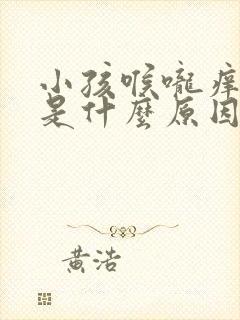 小孩喉嚨痒
是什麽原因
黃浩